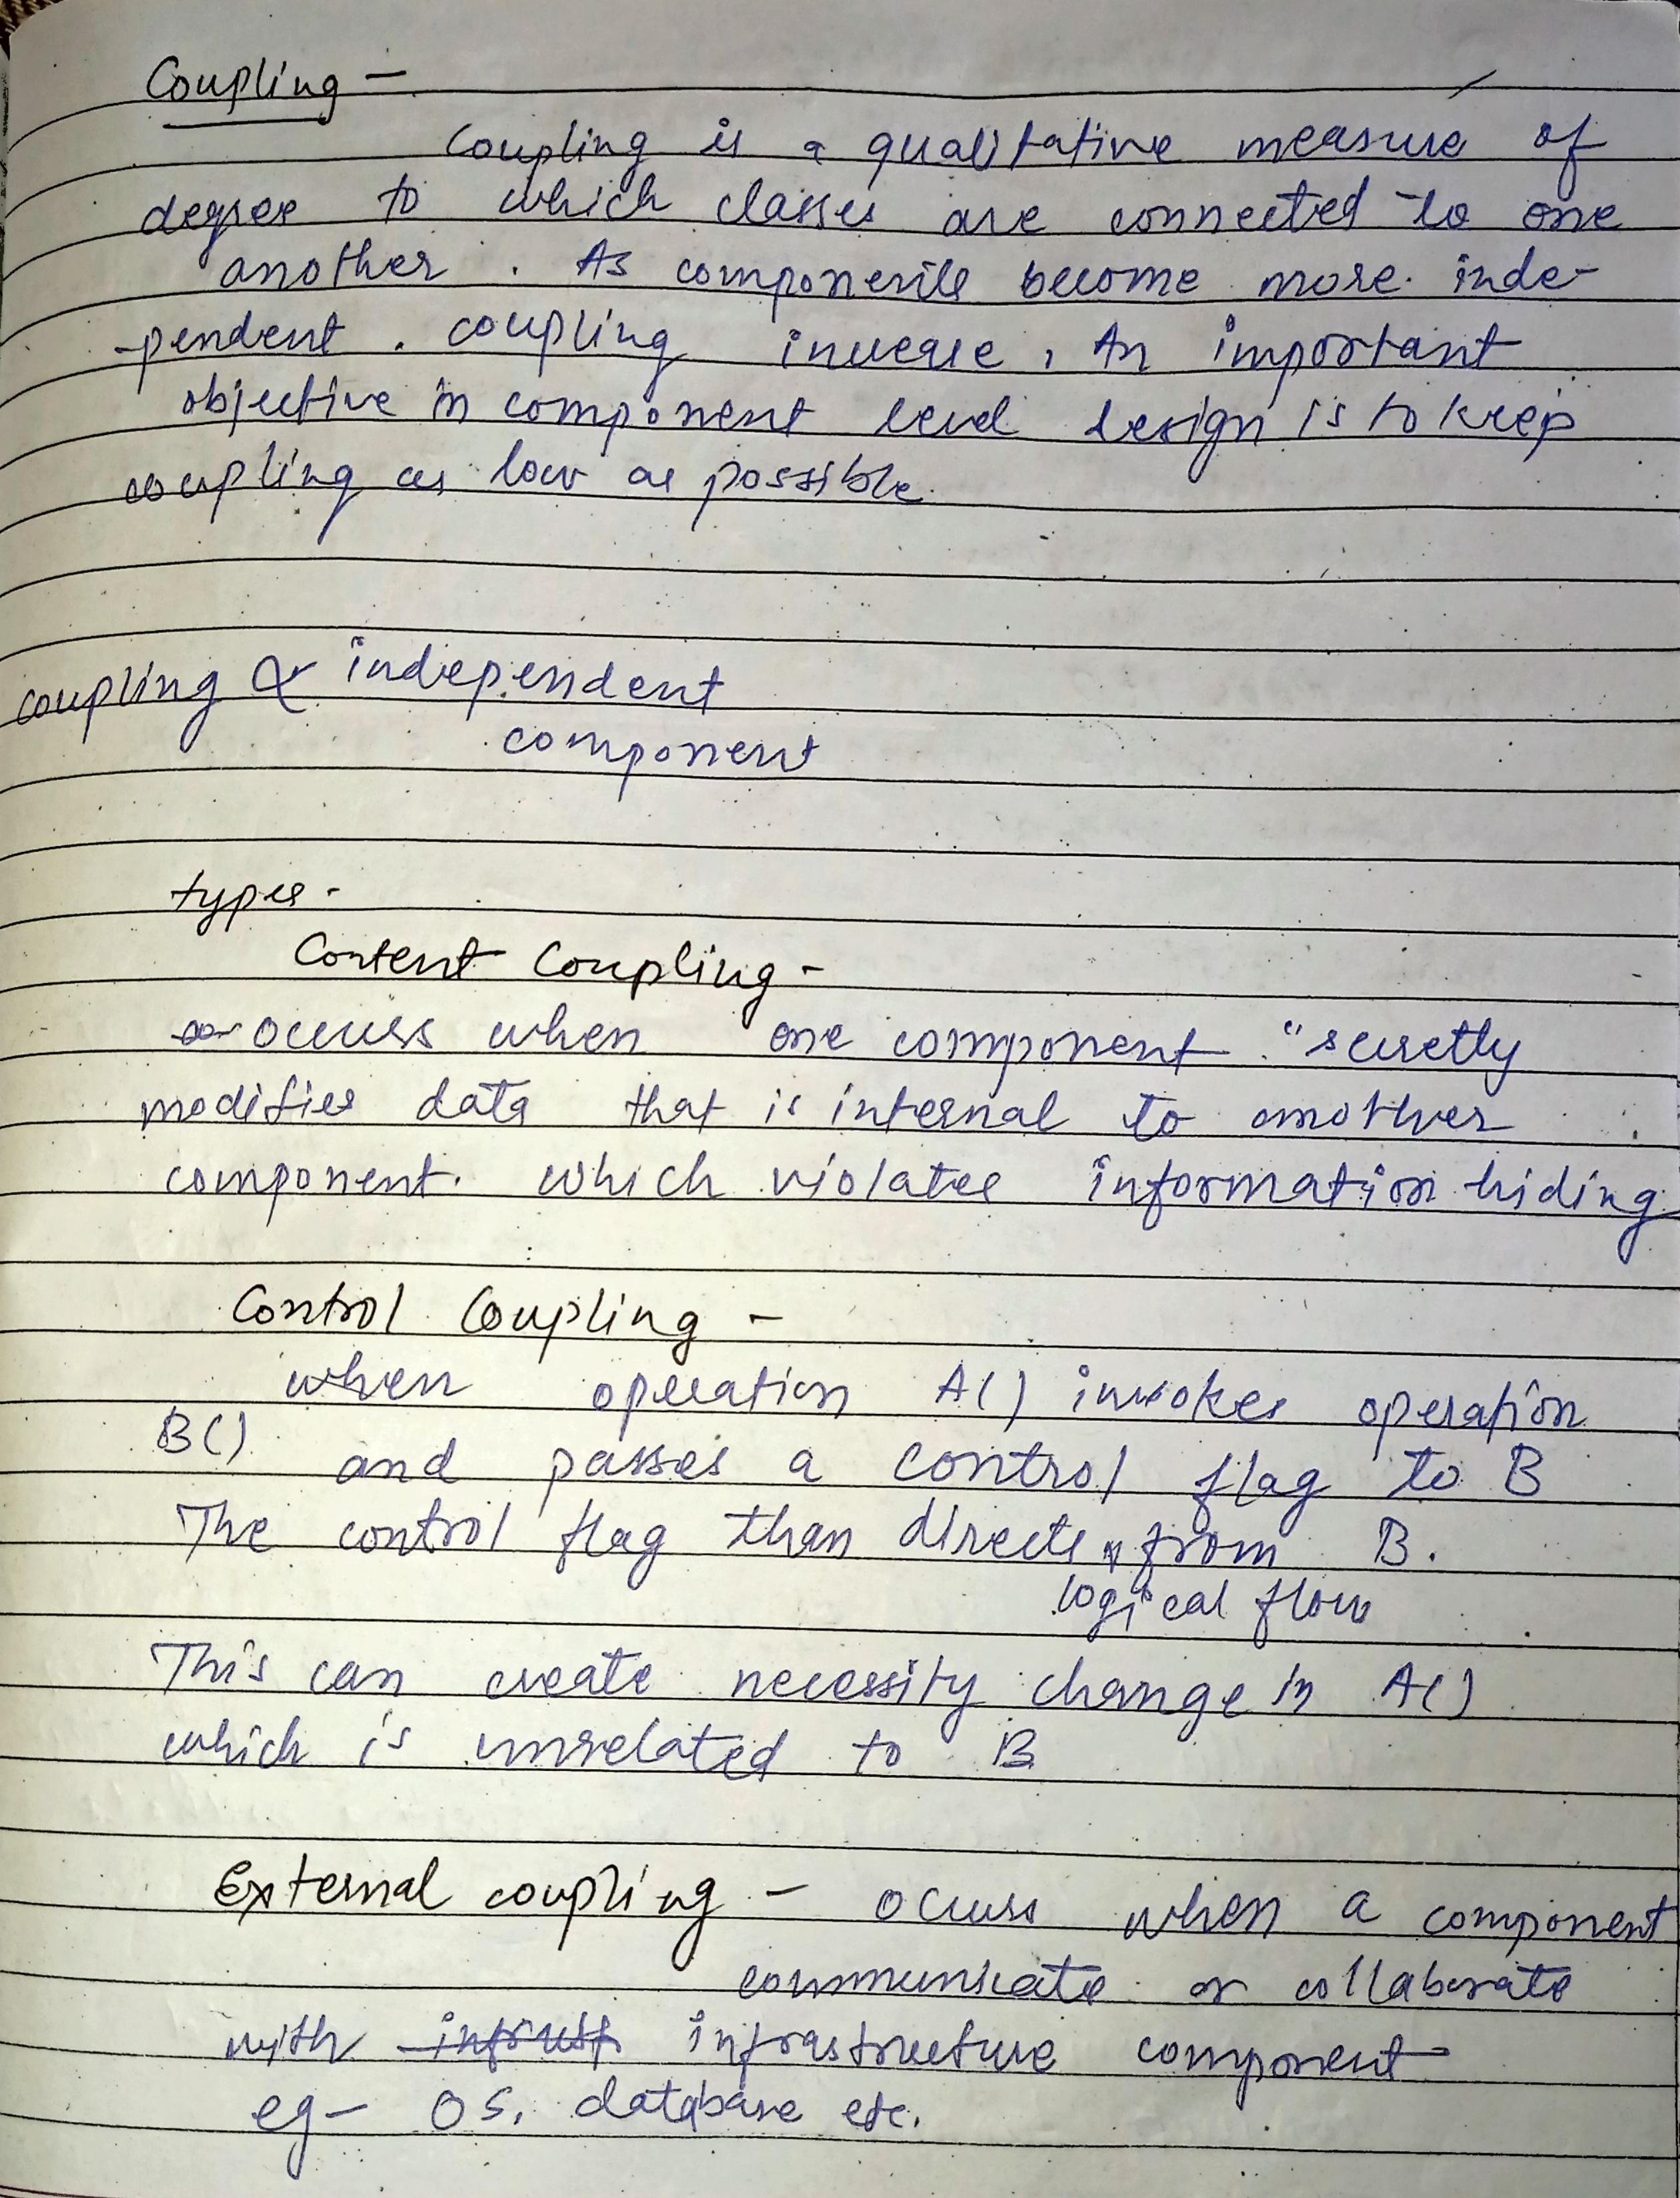 Coupling -
Coupling is a qualitative measure of
degree to which classes are connected to one
another. As components become more inde-
-pendent. coupling increase, An important
objective in component level design is to keep
coupling as low as possible.
coupling ∝ independent
component
types -
Content Coupling -
occurs when one component "secretly
modifies data that is internal to another
component. which violates information hiding
Control Coupling -
when operation A() invokes operation
B() and passes a control flag to B
The control flag than directs from B.
logical flow
This can create necessity change in A()
which is unrelated to B
External coupling - occurs when a component
communicate or collaborate
with infrastructure component
eg - OS, database etc.